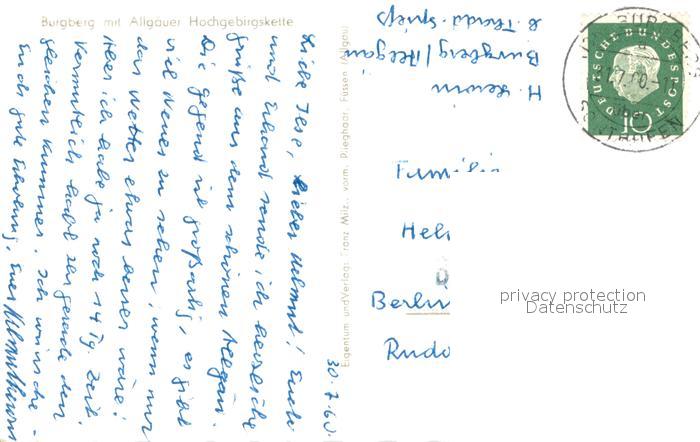 Burgberg mit Allgäuer Hochgebirgskette
30.7.60.
Liebe Ilse, lieber Helmut! Euch
und Erhard sende ich herzliche
Grüße aus dem schönen Allgäu.
Die Gegend ist großartig, es gibt
viel Neues zu sehen, wenn nur
das Wetter etwas besser wäre!
Aber ich habe ja noch 14 Tg. Zeit.
Vermutlich habt Ihr gerade den
gleichen Kummer. Ich wünsche
Euch gute Erholung, Euer
Eigentum und Verlag: Franz Milz, vorm. Plieghaar, Füssen (Allgäu)
H.
Burgberg/Allgäu
b.
DEUTSCHE BUNDESPOST
10
Familie
Hel
Berlin
Rudo
privacy protection
Datenschutz